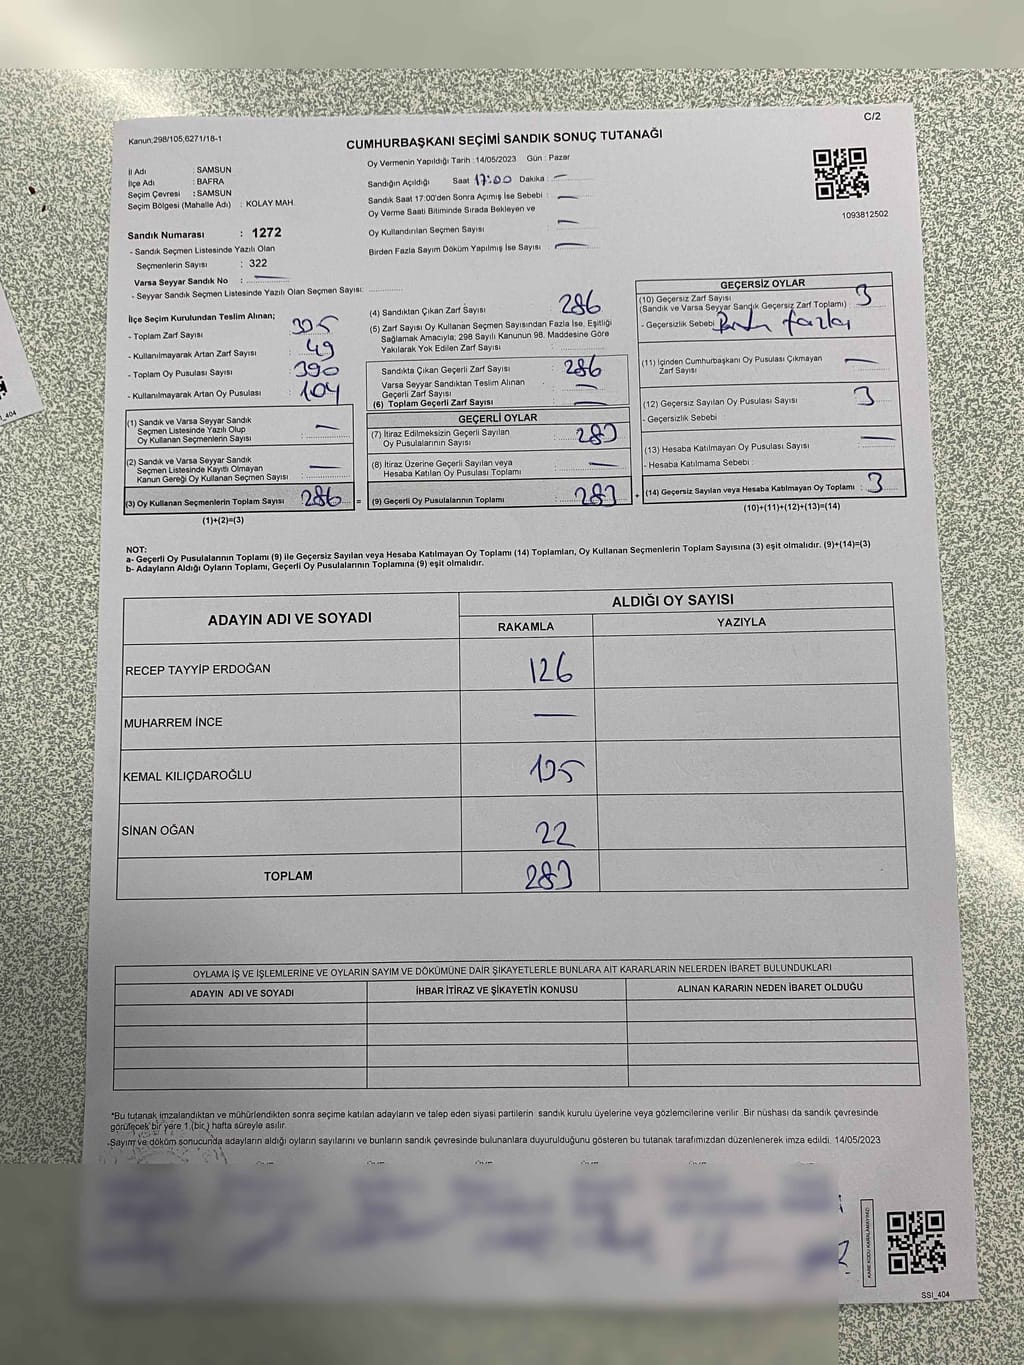 C/2
Kanun;298/105,6271/18-1
CUMHURBAŞKANI SEÇİMİ SANDIK SONUÇ TUTANAĞI
1093812502
İl Adı : SAMSUN
İlçe Adı : BAFRA
Seçim Çevresi : SAMSUN
Seçim Bölgesi (Mahalle Adı) : KOLAY MAH.
Sandık Numarası : 1272
- Sandık Seçmen Listesinde Yazılı Olan
Seçmenlerin Sayısı : 322
Varsa Seyyar Sandık No : —
- Seyyar Sandık Seçmen Listesinde Yazılı Olan Seçmen Sayısı: ............
Oy Vermenin Yapıldığı Tarih : 14/05/2023 Gün : Pazar
Sandığın Açıldığı Saat 17:00 Dakika : —
Sandık Saat 17:00'den Sonra Açımış İse Sebebi : —
Oy Verme Saati Bitiminde Sırada Bekleyen ve
Oy Kullandırılan Seçmen Sayısı : —
Birden Fazla Sayım Döküm Yapılmış İse Sayısı : —
İlçe Seçim Kurulundan Teslim Alınan;
- Toplam Zarf Sayısı :
- Kullanılmayarak Artan Zarf Sayısı : 49
- Toplam Oy Pusulası Sayısı : 390
- Kullanılmayarak Artan Oy Pusulası : 104
(1) Sandık ve Varsa Seyyar Sandık
Seçmen Listesinde Yazılı Olup
Oy Kullanan Seçmenlerin Sayısı : —
(2) Sandık ve Varsa Seyyar Sandık
Seçmen Listesinde Kayıtlı Olmayan
Kanun Gereği Oy Kullanan Seçmen Sayısı : —
(3) Oy Kullanan Seçmenlerin Toplam Sayısı : 286 =
(1)+(2)=(3)
(4) Sandıktan Çıkan Zarf Sayısı : 286
(5) Zarf Sayısı Oy Kullanan Seçmen Sayısından Fazla İse, Eşitliği
Sağlamak Amacıyla; 298 Sayılı Kanunun 98. Maddesine Göre
Yakılarak Yok Edilen Zarf Sayısı :
Sandıkta Çıkan Geçerli Zarf Sayısı : 286
Varsa Seyyar Sandıktan Teslim Alınan
Geçerli Zarf Sayısı : —
(6) Toplam Geçerli Zarf Sayısı : —
GEÇERLİ OYLAR
(7) İtiraz Edilmeksizin Geçerli Sayılan
Oy Pusulalarının Sayısı : 283
(8) İtiraz Üzerine Geçerli Sayılan veya
Hesaba Katılan Oy Pusulası Toplamı : —
(9) Geçerli Oy Pusulalarının Toplamı : 283 +
GEÇERSİZ OYLAR
(10) Geçersiz Zarf Sayısı
(Sandık ve Varsa Seyyar Sandık Geçersiz Zarf Toplamı) : 3
- Geçersizlik Sebebi : fazla
(11) İçinden Cumhurbaşkanı Oy Pusulası Çıkmayan
Zarf Sayısı : —
(12) Geçersiz Sayılan Oy Pusulası Sayısı : 3
- Geçersizlik Sebebi :
(13) Hesaba Katılmayan Oy Pusulası Sayısı : —
- Hesaba Katılmama Sebebi :
(14) Geçersiz Sayılan veya Hesaba Katılmayan Oy Toplamı : 3
(10)+(11)+(12)+(13)=(14)
NOT:
a- Geçerli Oy Pusulalarının Toplamı (9) ile Geçersiz Sayılan veya Hesaba Katılmayan Oy Toplamı (14) Toplamları, Oy Kullanan Seçmenlerin Toplam Sayısına (3) eşit olmalıdır. (9)+(14)=(3)
b- Adayların Aldığı Oyların Toplamı, Geçerli Oy Pusulalarının Toplamına (9) eşit olmalıdır.
ADAYIN ADI VE SOYADI
ALDIĞI OY SAYISI
RAKAMLA YAZIYLA
RECEP TAYYİP ERDOĞAN 126
MUHARREM İNCE —
KEMAL KILIÇDAROĞLU 135
SİNAN OĞAN 22
TOPLAM 283
OYLAMA İŞ VE İŞLEMLERİNE VE OYLARIN SAYIM VE DÖKÜMÜNE DAİR ŞİKAYETLERLE BUNLARA AİT KARARLARIN NELERDEN İBARET BULUNDUKLARI
ADAYIN ADI VE SOYADI İHBAR İTİRAZ VE ŞİKAYETİN KONUSU ALINAN KARARIN NEDEN İBARET OLDUĞU
*Bu tutanak imzalandıktan ve mühürlendikten sonra seçime katılan adayların ve talep eden siyasi partilerin sandık kurulu üyelerine veya gözlemcilerine verilir. Bir nüshası da sandık çevresinde
görülecek bir yere 1.(bir.) hafta süreyle asılır.
-Sayım ve döküm sonucunda adayların aldığı oyların sayılarını ve bunların sandık çevresinde bulunanlara duyurulduğunu gösteren bu tutanak tarafımızdan düzenlenerek imza edildi. 14/05/2023
KARE KODU KARALAMAYINIZ!
SSI_404